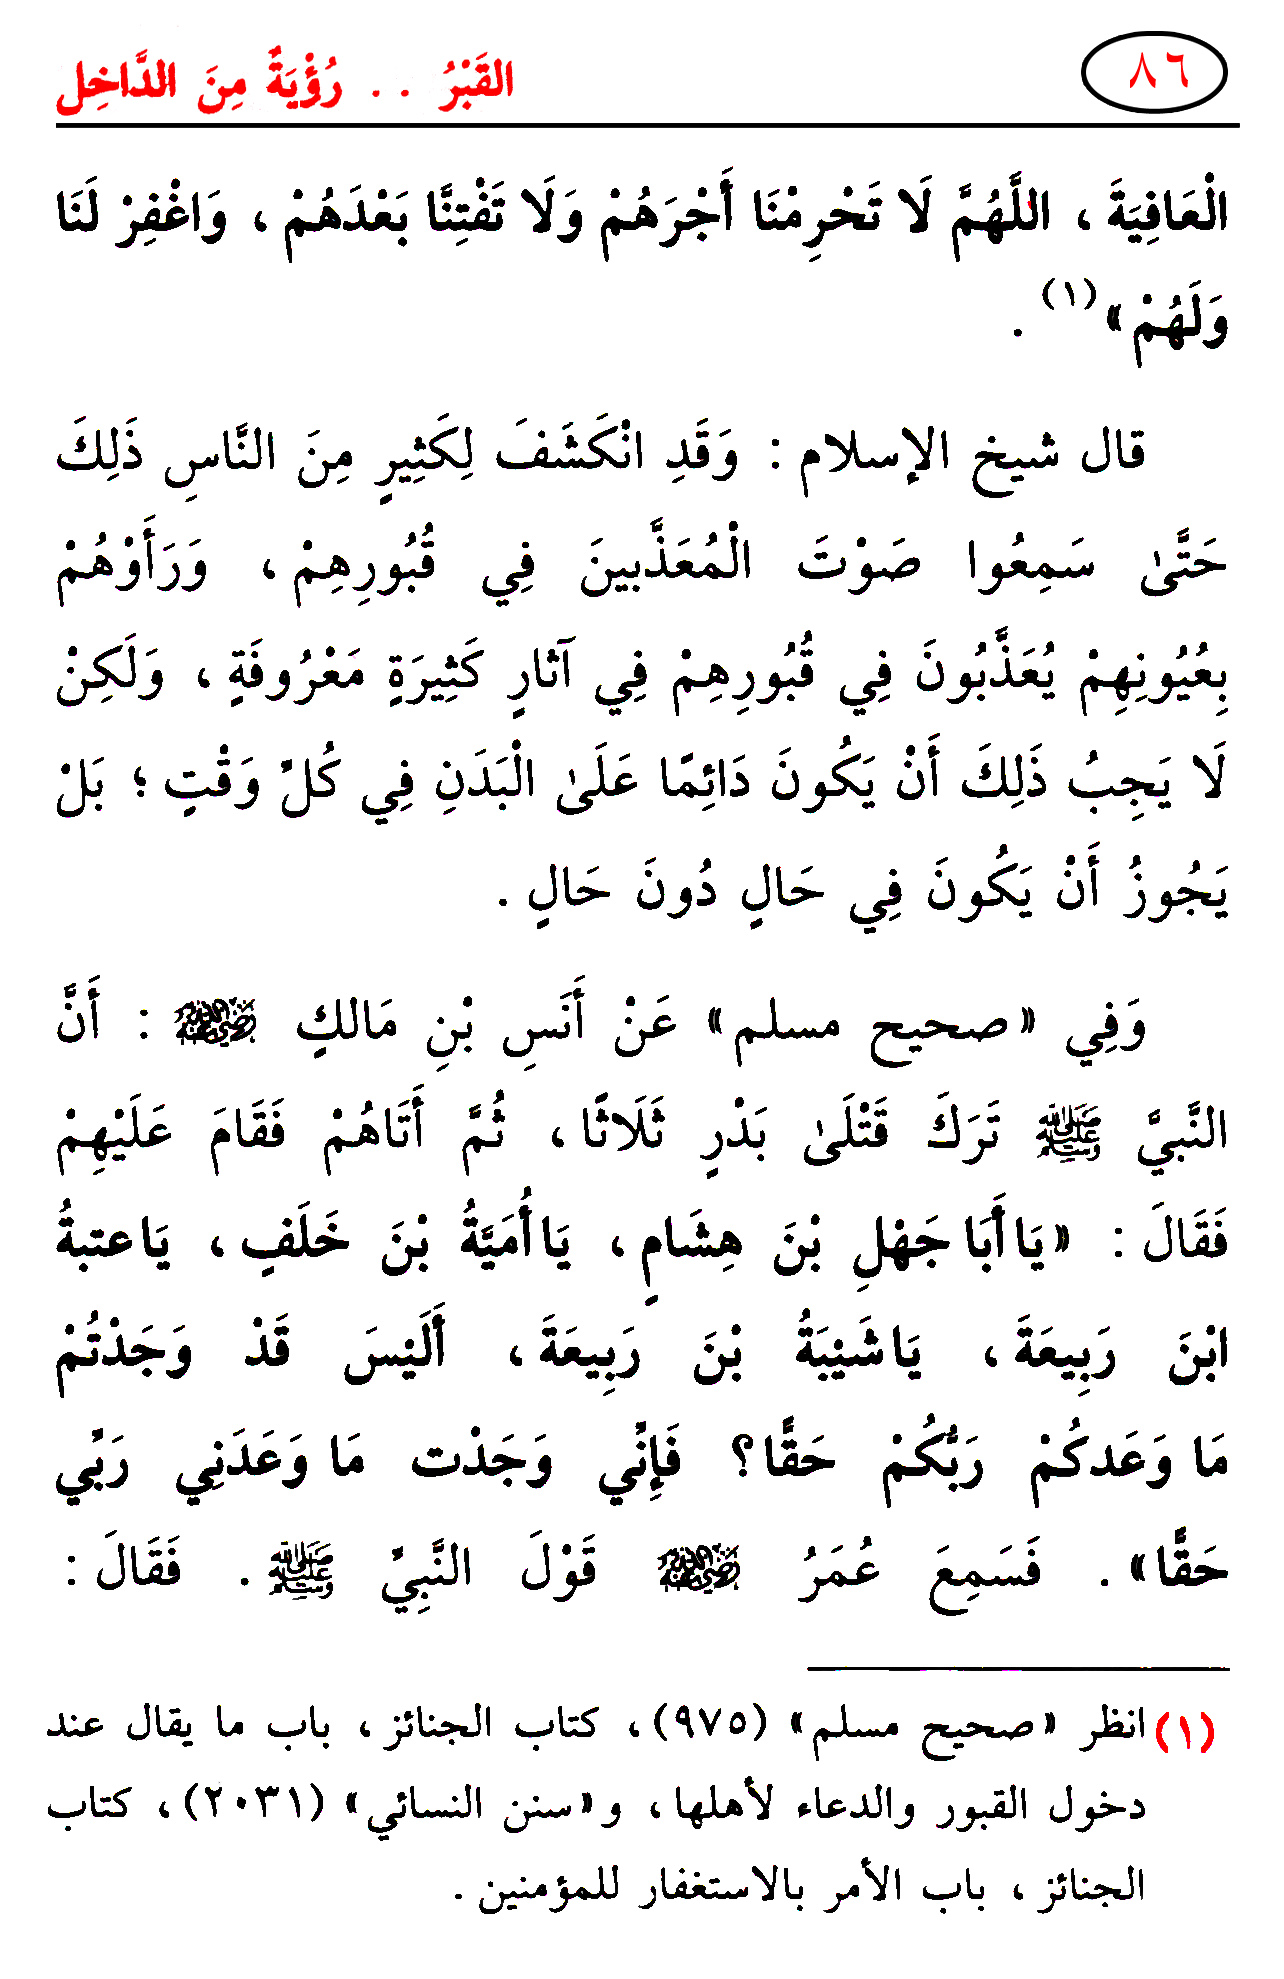 ٨٦
القَبْرُ .. رُؤْيَةٌ مِنَ الدَّاخِل
الْعَافِيَةَ ، اللَّهُمَّ لَا تَحْرِمْنَا أَجْرَهُمْ وَلَا تَفْتِنَّا بَعْدَهُمْ ، وَاغْفِرْ لَنَا
وَلَهُمْ»(١) .
قال شيخ الإسلام : وَقَدِ انْكَشَفَ لِكَثِيرٍ مِنَ النَّاسِ ذَلِكَ
حَتَّىٰ سَمِعُوا صَوْتَ الْمُعَذَّبينَ فِي قُبُورِهِمْ ، وَرَأَوْهُمْ
بِعُيُونِهِمْ يُعَذَّبُونَ فِي قُبُورِهِمْ فِي آثارٍ كَثِيرَةٍ مَعْرُوفَةٍ ، وَلَكِنْ
لَا يَجِبُ ذَلِكَ أَنْ يَكُونَ دَائِمًا عَلَىٰ الْبَدَنِ فِي كُلِّ وَقْتٍ ؛ بَلْ
يَجُوزُ أَنْ يَكُونَ فِي حَالٍ دُونَ حَالٍ .
وَفِي «صحيح مسلم» عَنْ أَنَسِ بْنِ مَالكٍ رضي الله عنه : أَنَّ
النَّبيَّ ﷺ تَرَكَ قَتْلَىٰ بَدْرٍ ثَلَاثًا ، ثُمَّ أَتَاهُمْ فَقَامَ عَلَيْهِمْ
فَقَالَ : «يَا أَبَا جَهْلِ بْنَ هِشَامٍ ، يَا أُمَيَّةُ بْنَ خَلَفٍ ، يَا عتبةُ
ابْنَ رَبِيعَةَ ، يَا شَيْبَةُ بْنَ رَبِيعَةَ ، أَلَيْسَ قَدْ وَجَدْتُمْ
مَا وَعَدكُمْ رَبُّكُمْ حَقًّا؟ فَإِنِّي وَجَدْت مَا وَعَدَنِي رَبِّي
حَقًّا» . فَسَمِعَ عُمَرُ رضي الله عنه قَوْلَ النَّبِيِّ ﷺ . فَقَالَ :
(١) انظر «صحيح مسلم» (٩٧٥) ، كتاب الجنائز ، باب ما يقال عند
دخول القبور والدعاء لأهلها ، و«سنن النسائي» (٢٠٣١) ، كتاب
الجنائز ، باب الأمر بالاستغفار للمؤمنين .